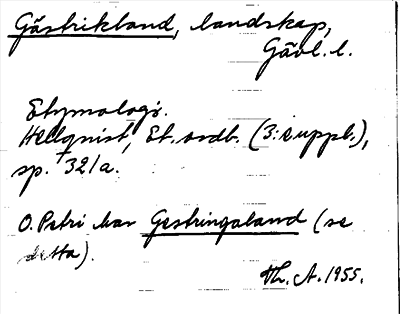 Gästrikland, landskap,
Gävl. l.
Etymologi.
Hellquist, Et. ordb. (3:e uppl.),
sp. 321a.
O. Petri har Gestringaland (se
detta).
Th. A. 1955.